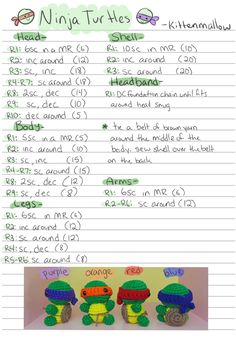 Ninja Turtles
-Kittenmallow
Head-
R1: 6sc in MR (6)
R2: inc around (12)
R3: sc, inc (18)
R4-R7: sc around (18)
R8: 2sc, dec (14)
R9: sc, dec (10)
R10: dec around (5)
Shell-
R1: 10sc in MR (10)
R2: inc around (20)
R3: sc around (20)
Headband-
R1: DC foundation chain until fits
around head snug
Body-
R1: 5sc in a MR (5)
R2: inc around (10)
R3: sc, inc (15)
R4-R7: sc around (15)
R8: 2sc, dec (12)
R9: sc, dec (8)
* tie a belt of brown yarn
around the middle of the
body. sew shell over the belt
on the back
Legs-
R1: 6sc in MR (6)
R2: inc around (12)
R3: sc around (12)
R4: sc, dec (8)
R5-R6: sc around (8)
Arms-
R1: 6sc in MR (6)
R2-R6: sc around (6)
purple orange red blue